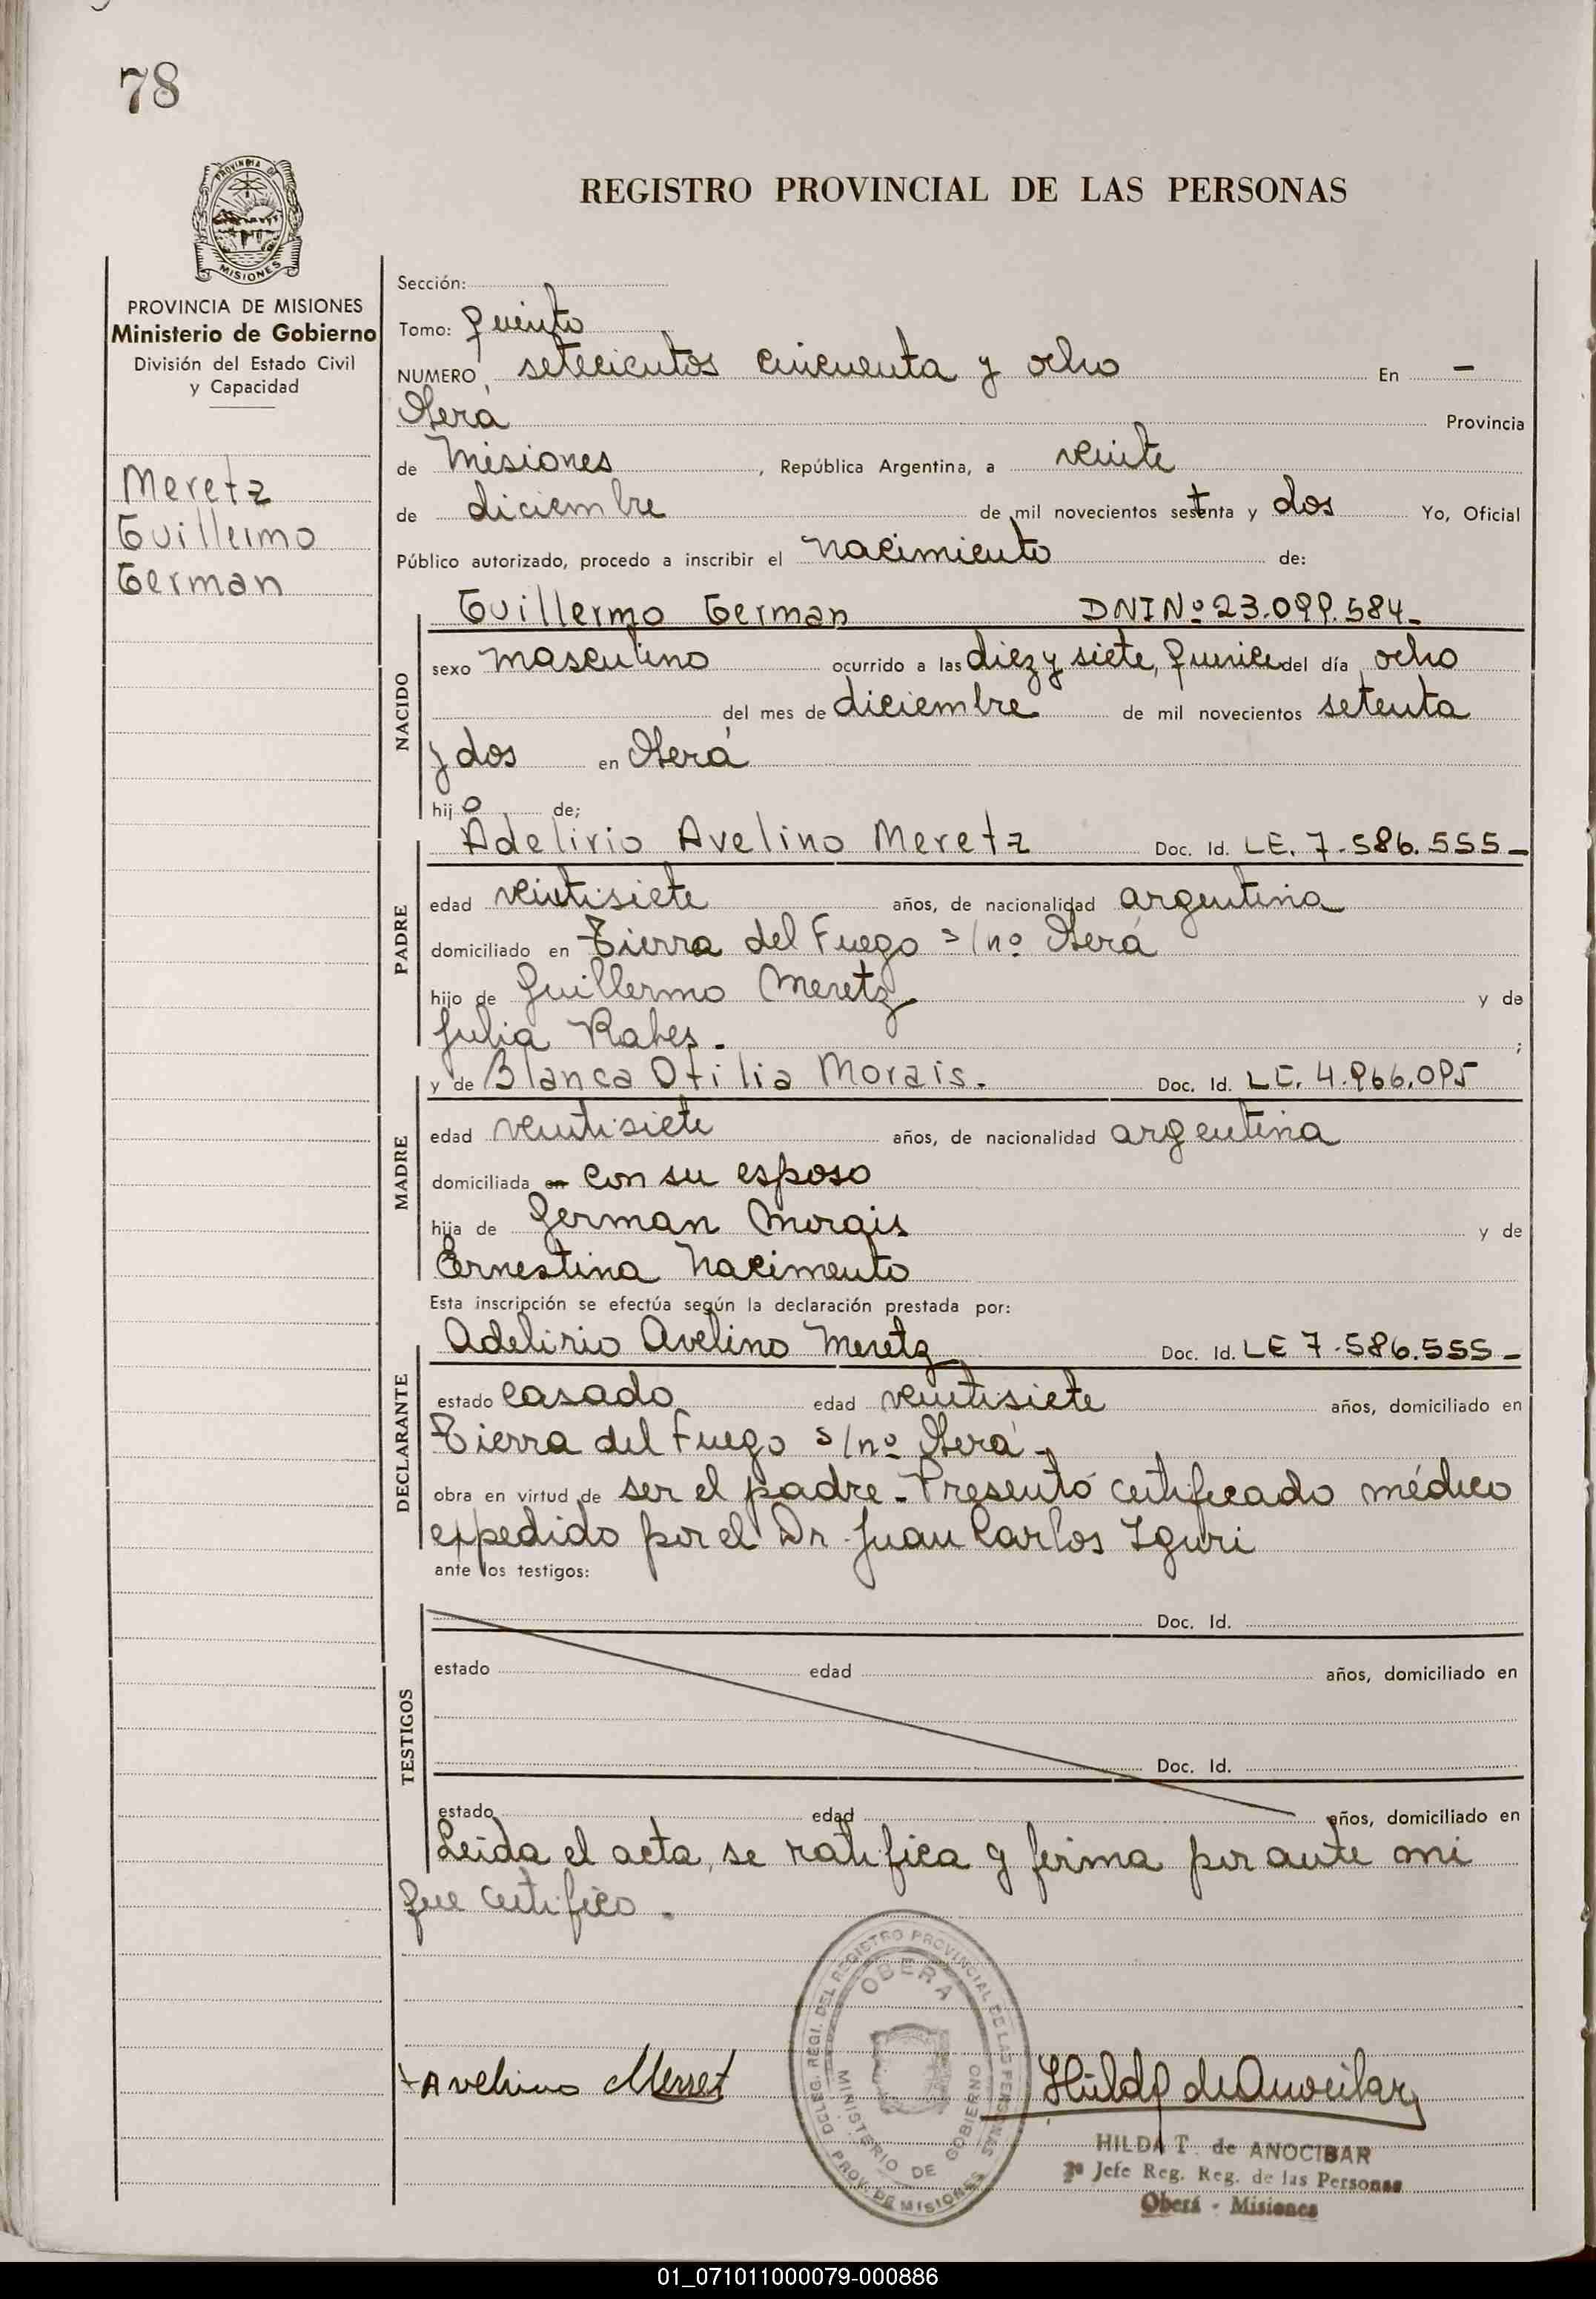 78
PROVINCIA DE
MISIONES
REGISTRO PROVINCIAL DE LAS PERSONAS
PROVINCIA DE MISIONES
Ministerio de Gobierno
División del Estado Civil
y Capacidad
Meretz
Guillermo
German
Sección:
Tomo: quinto
NUMERO setecientos cincuenta y ocho En -
Oberá Provincia
de Misiones, República Argentina, a veinte
de diciembre de mil novecientos setenta y dos Yo, Oficial
Público autorizado, procedo a inscribir el nacimiento de:
NACIDO
Guillermo German DNI Nº 23.099.584-
sexo masculino ocurrido a las diez y siete, quince del día ocho
del mes de diciembre de mil novecientos setenta
y dos en Oberá
hijo de;
PADRE
Adelirio Avelino Meretz Doc. Id. LE. 7.586.555-
edad veintisiete años, de nacionalidad argentina
domiciliado en Tierra del Fuego s/nº Oberá
hijo de Guillermo Meretz y de
Julia Rabes. ;
MADRE
y de Blanca Otilia Morais. Doc. Id. LC. 4.966.095
edad veintisiete años, de nacionalidad argentina
domiciliada en con su esposo
hija de German Morais y de
Ernestina Nacimento
Esta inscripción se efectúa según la declaración prestada por:
DECLARANTE
Adelirio Avelino Meretz Doc. Id. LE 7.586.555-
estado casado edad veintisiete años, domiciliado en
Tierra del Fuego s/nº Oberá-
obra en virtud de ser el padre-Presentó certificado médico
expedido por el Dr. Juan Carlos Iguri
ante los testigos:
TESTIGOS
Doc. Id.
estado edad años, domiciliado en
Doc. Id.
estado edad años, domiciliado en
Leida el acta, se ratifica y firma por ante mi
que certifico.
DELEG. REGI. DEL REGISTRO PROVINCIAL DE LAS PERSONAS
OBERA
MINISTERIO DE GOBIERNO
PROV. DE MISIONES
Avelino Merret
HILDA T. de ANOCIBAR
Jefe Reg. Reg. de las Personas
Oberá - Misiones
01_071011000079-000886